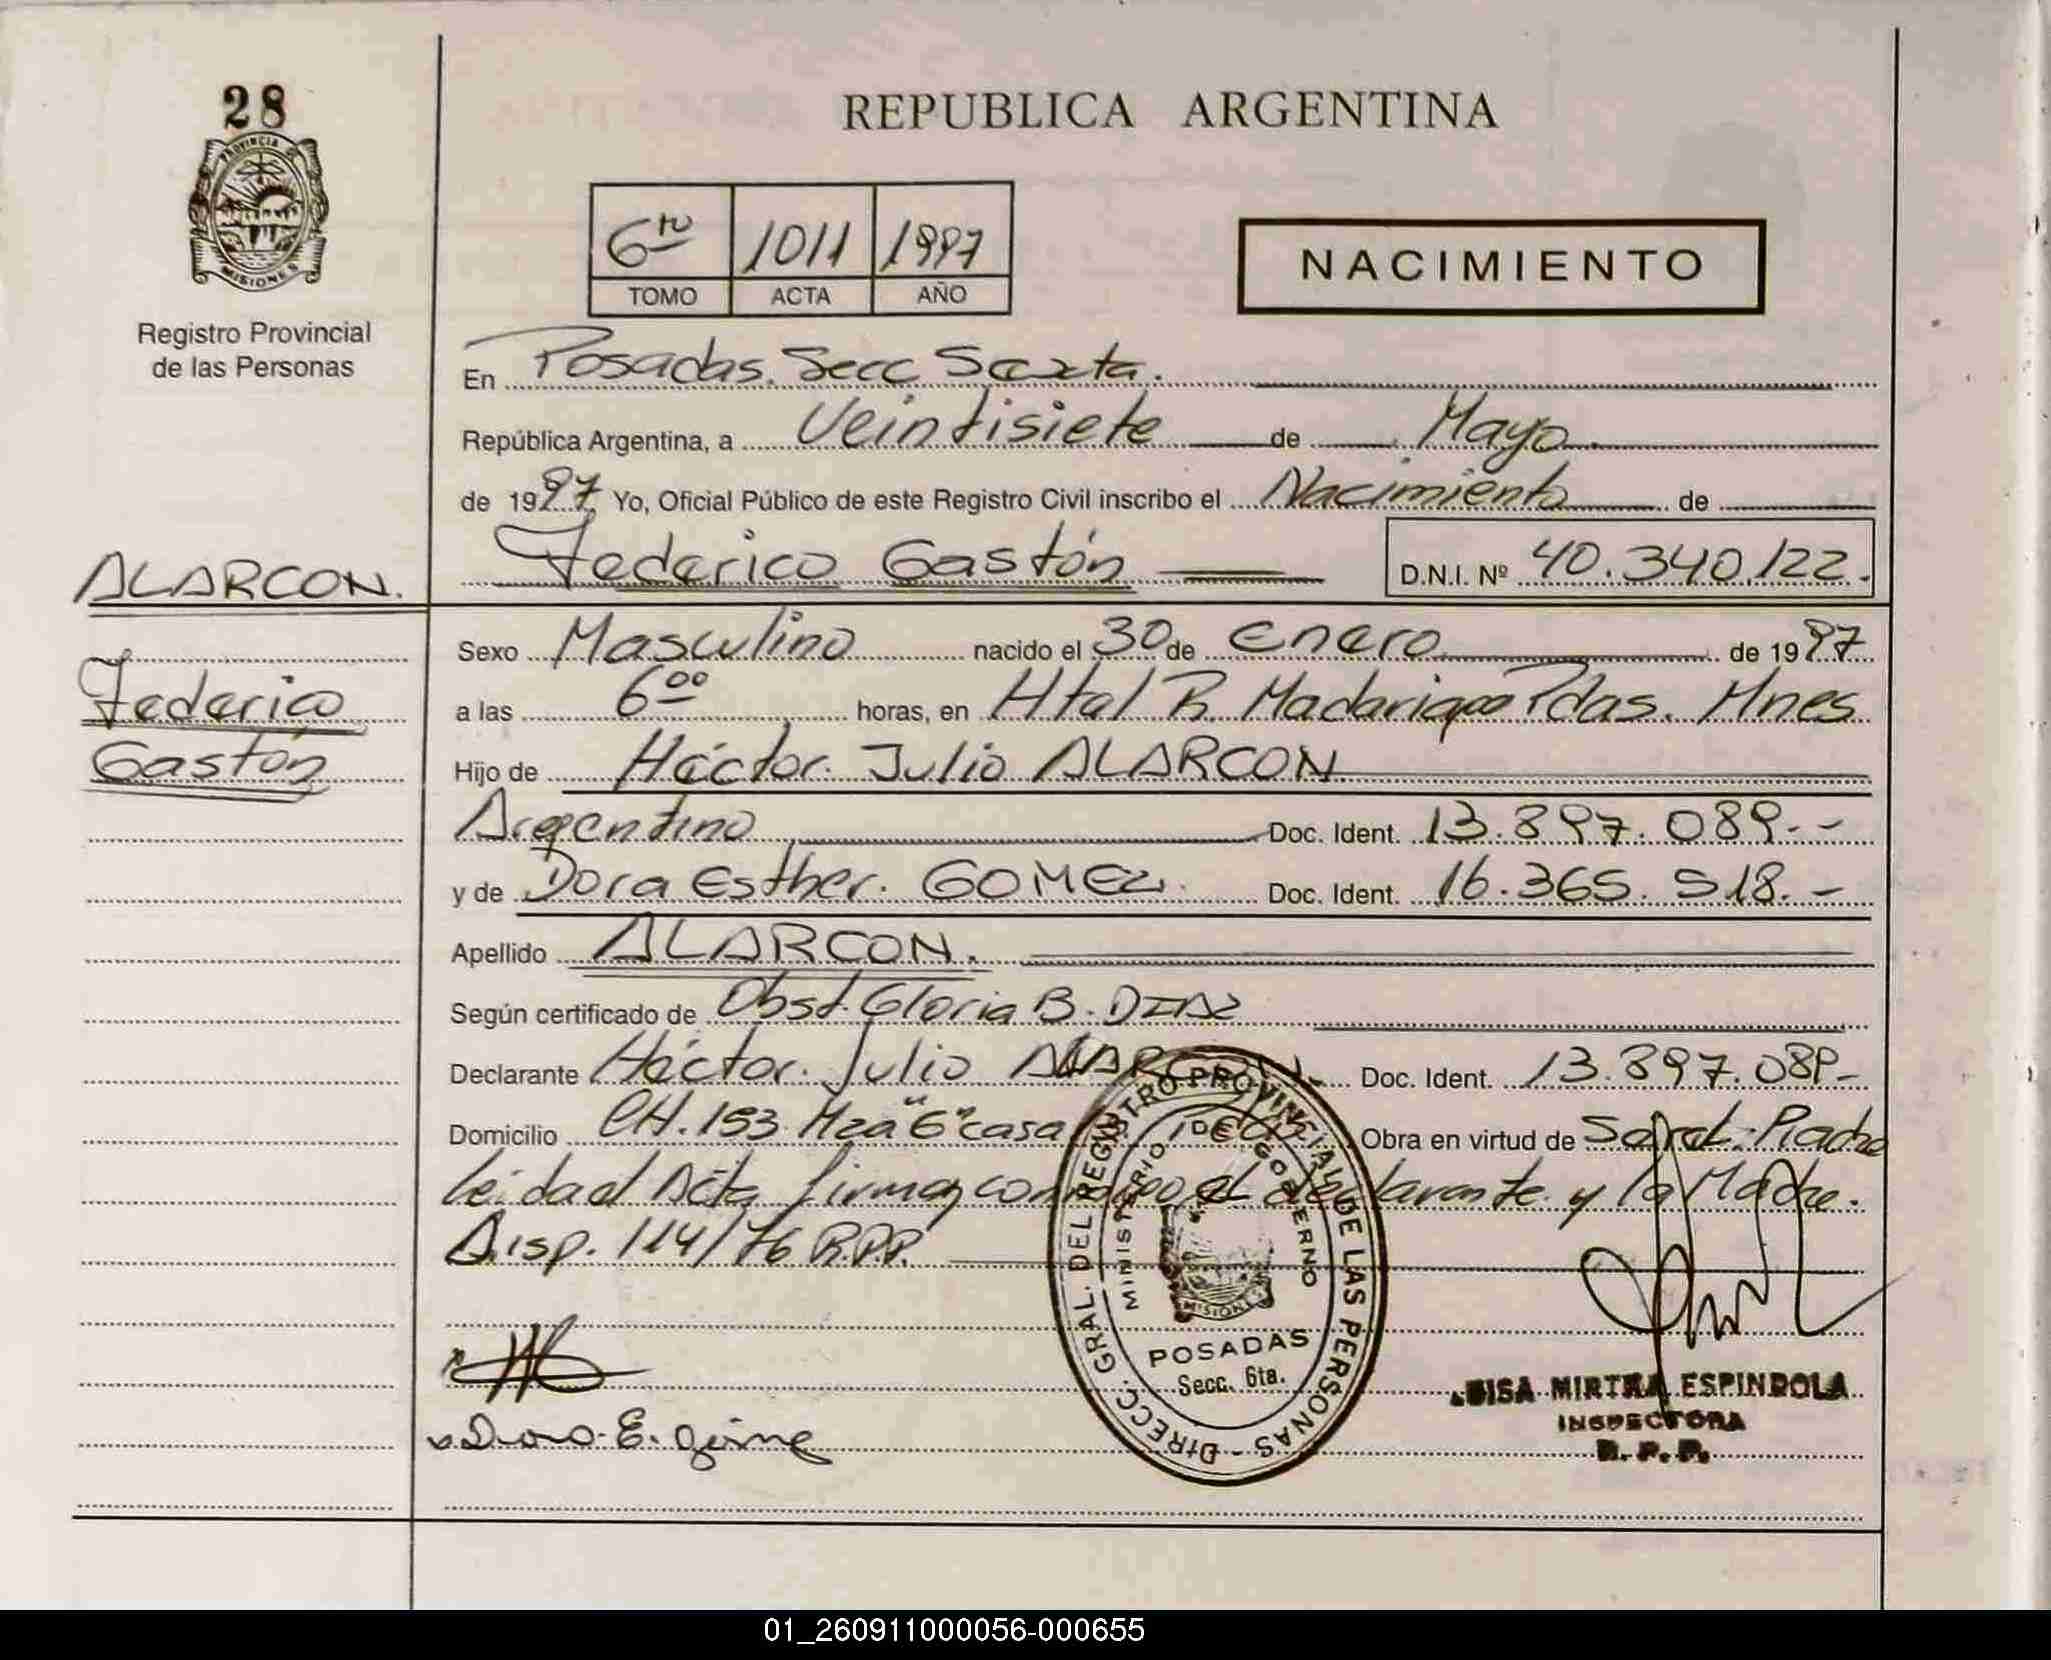 28
PROVINCIA DE
MISIONES
Registro Provincial
de las Personas
REPUBLICA ARGENTINA
6to 1011 1997
TOMO ACTA AÑO
NACIMIENTO
En Posadas. Secc Sexta.
República Argentina, a Veintisiete de Mayo
de 1997 Yo, Oficial Público de este Registro Civil inscribo el Nacimiento de
Federico Gastón D.N.I. Nº 40.340.122.
ALARCON.
Federico
Gastón
Sexo Masculino nacido el 30 de Enero de 1997
a las 6⁰⁰ horas, en Htal R. Madariaga Pdas. Mnes
Hijo de Héctor Julio ALARCON
Argentino Doc. Ident. 13.897.089.--
y de Dora Esther GOMEZ. Doc. Ident. 16.365.518.-
Apellido ALARCON.
Según certificado de Obst. Gloria B. DIAZ
Declarante Héctor Julio ALARCON. Doc. Ident. 13.897.089-
Domicilio CH. 153 Mza "G" casa Obra en virtud de
Leida el Acta firman conmigo el declarante y la Madre.
Disp. 114/76 R.P.P.
DIRECC. GRAL. DEL REGISTRO PROVINCIAL DE LAS PERSONAS -
MINISTERIO DE GOBIERNO
MISIONES
POSADAS
Secc. 6ta.
LUISA MIRTHA ESPINDOLA
INSPECTORA
R. P. P.
Dora E.
01_260911000056-000655